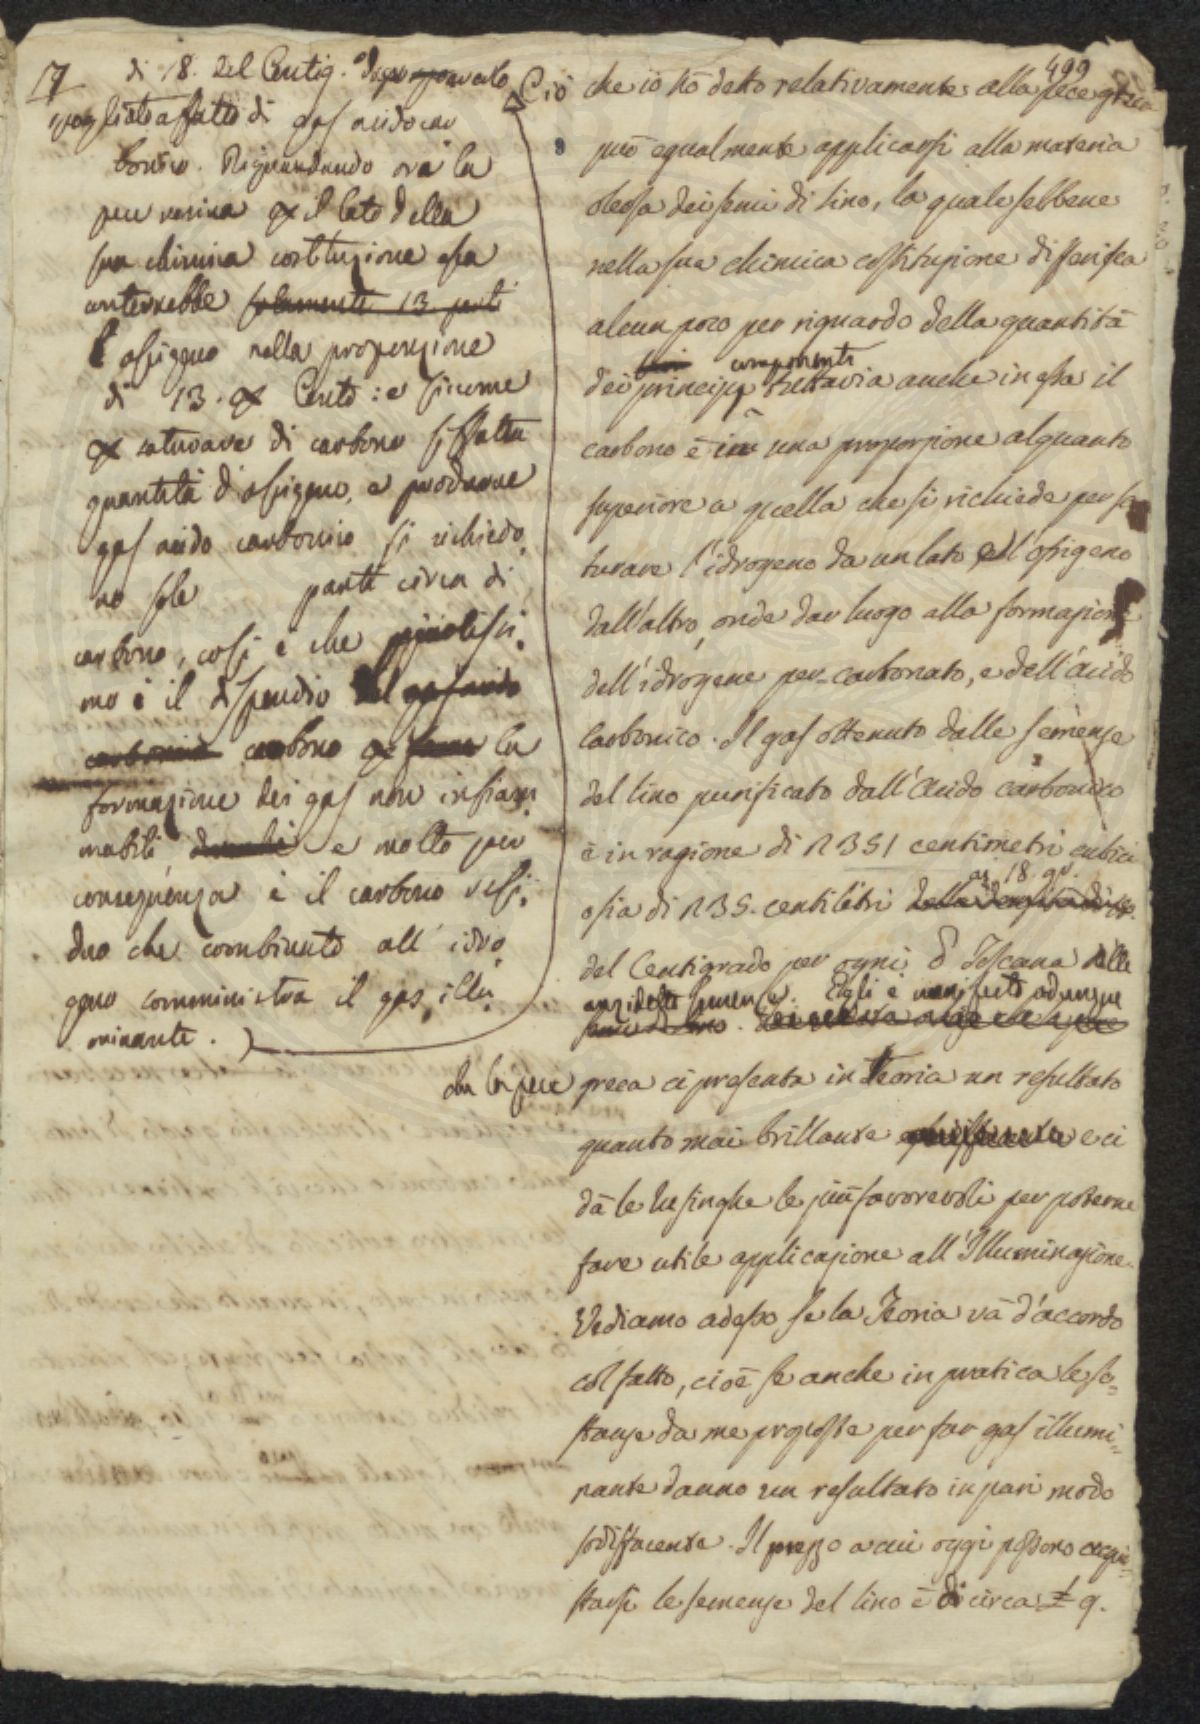 499
17
di 18. del Centig. dopo
spogliato affatto di gas acido car
bonico. Riguardando ora la
pece resina per il lato della
sua chimica costituzione essa
conterrebbe solamente 13. parti
l'ossigeno nella proporzione
di 13. per Cento: e siccome
per saturare di carbonio siffatta
quantità d'ossigeno, e produrne
gas acido carbonico si richiedo,
no sole parti circa di
carbono, così è che piccolissi,
mo è il dispendio del gas acido
carbonico carbono per la
formazione dei gas non infiam
mabili, e molto per
conseguenza è il carbono resi,
duo che combinato all' idro,
geno somministra il gas, illu,
minante.
Ciò che io hò detto relativamente alla pece greca
può egualmente applicarsi alla materia
oleosa dei semi di lino, la quale sebbene
nella sua chimica costituzione differisca
alcun poco per riguardo della quantità
componenti
dei principj tuttavia anche in essa il
carbono è in una proporzione alquanto
superiore a quella che si richiede per sa
turare l'idrogeno da un lato, e l'ossigeno
dall'altro, onde dar luogo alla formazione
dell'idrogene per-carbonato, e dell'acido
Carbonico. Il gas ottenuto dalle semense
del lino purificato dall'Acido carbonico
è in ragione di 2351 centimetri cubici
a 18. gr.
ossia di 235. centilitri della densità di
del Centigrado per ogni Toscana delle
anzidette semense. Egli è manifesto adunque
semi di lino.
che la pece greca ci presenta in Teoria un resultato
quanto mai brillante e ci
dà le lusinghe le più favorevoli per poterne
fare utile applicazione all'Illuminazione.
Vediamo adesso se la Teoria và d'accordo
col fatto, cioè se anche in pratica le so=
stanze da me proposte per far gas illumi=
nante danno un resultato in pari modo
sodisfacente. Il prezzo a cui oggi possono acqui=
starsi le semense del lino è di circa £ 9.